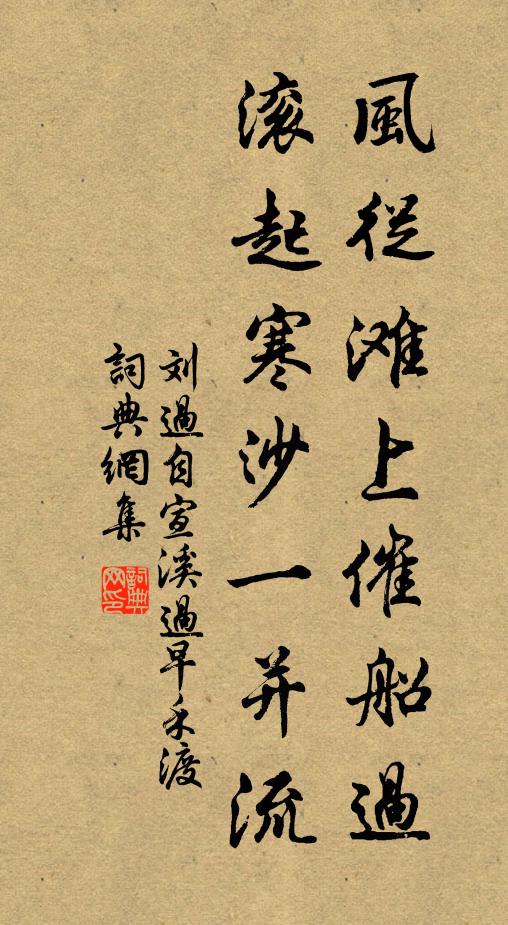 風從滩上催船過
滚起寒沙一并流
刘過自宣溪過早禾渡
詞典網集
詞典网印